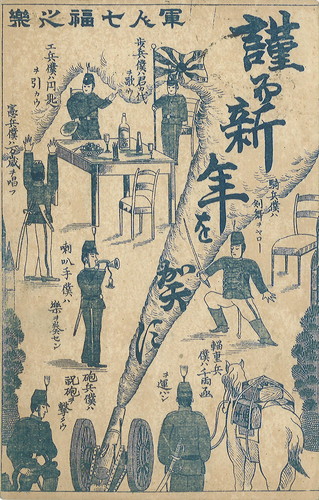 軍人七福之樂
謹而新年を賀
歩兵僕ハ君が代
ヲ歌ウ
工兵僕ハ円匙
ヲ引カウ
憲兵僕ハ万歳ヲ唱フ
騎兵僕ハ
剣舞ヲヤロー
喇叭手僕ハ
樂ヲ奏セン
砲兵僕ハ
祝砲ヲ撃タウ
輜重兵
僕ハ千両函
ヲ運バン